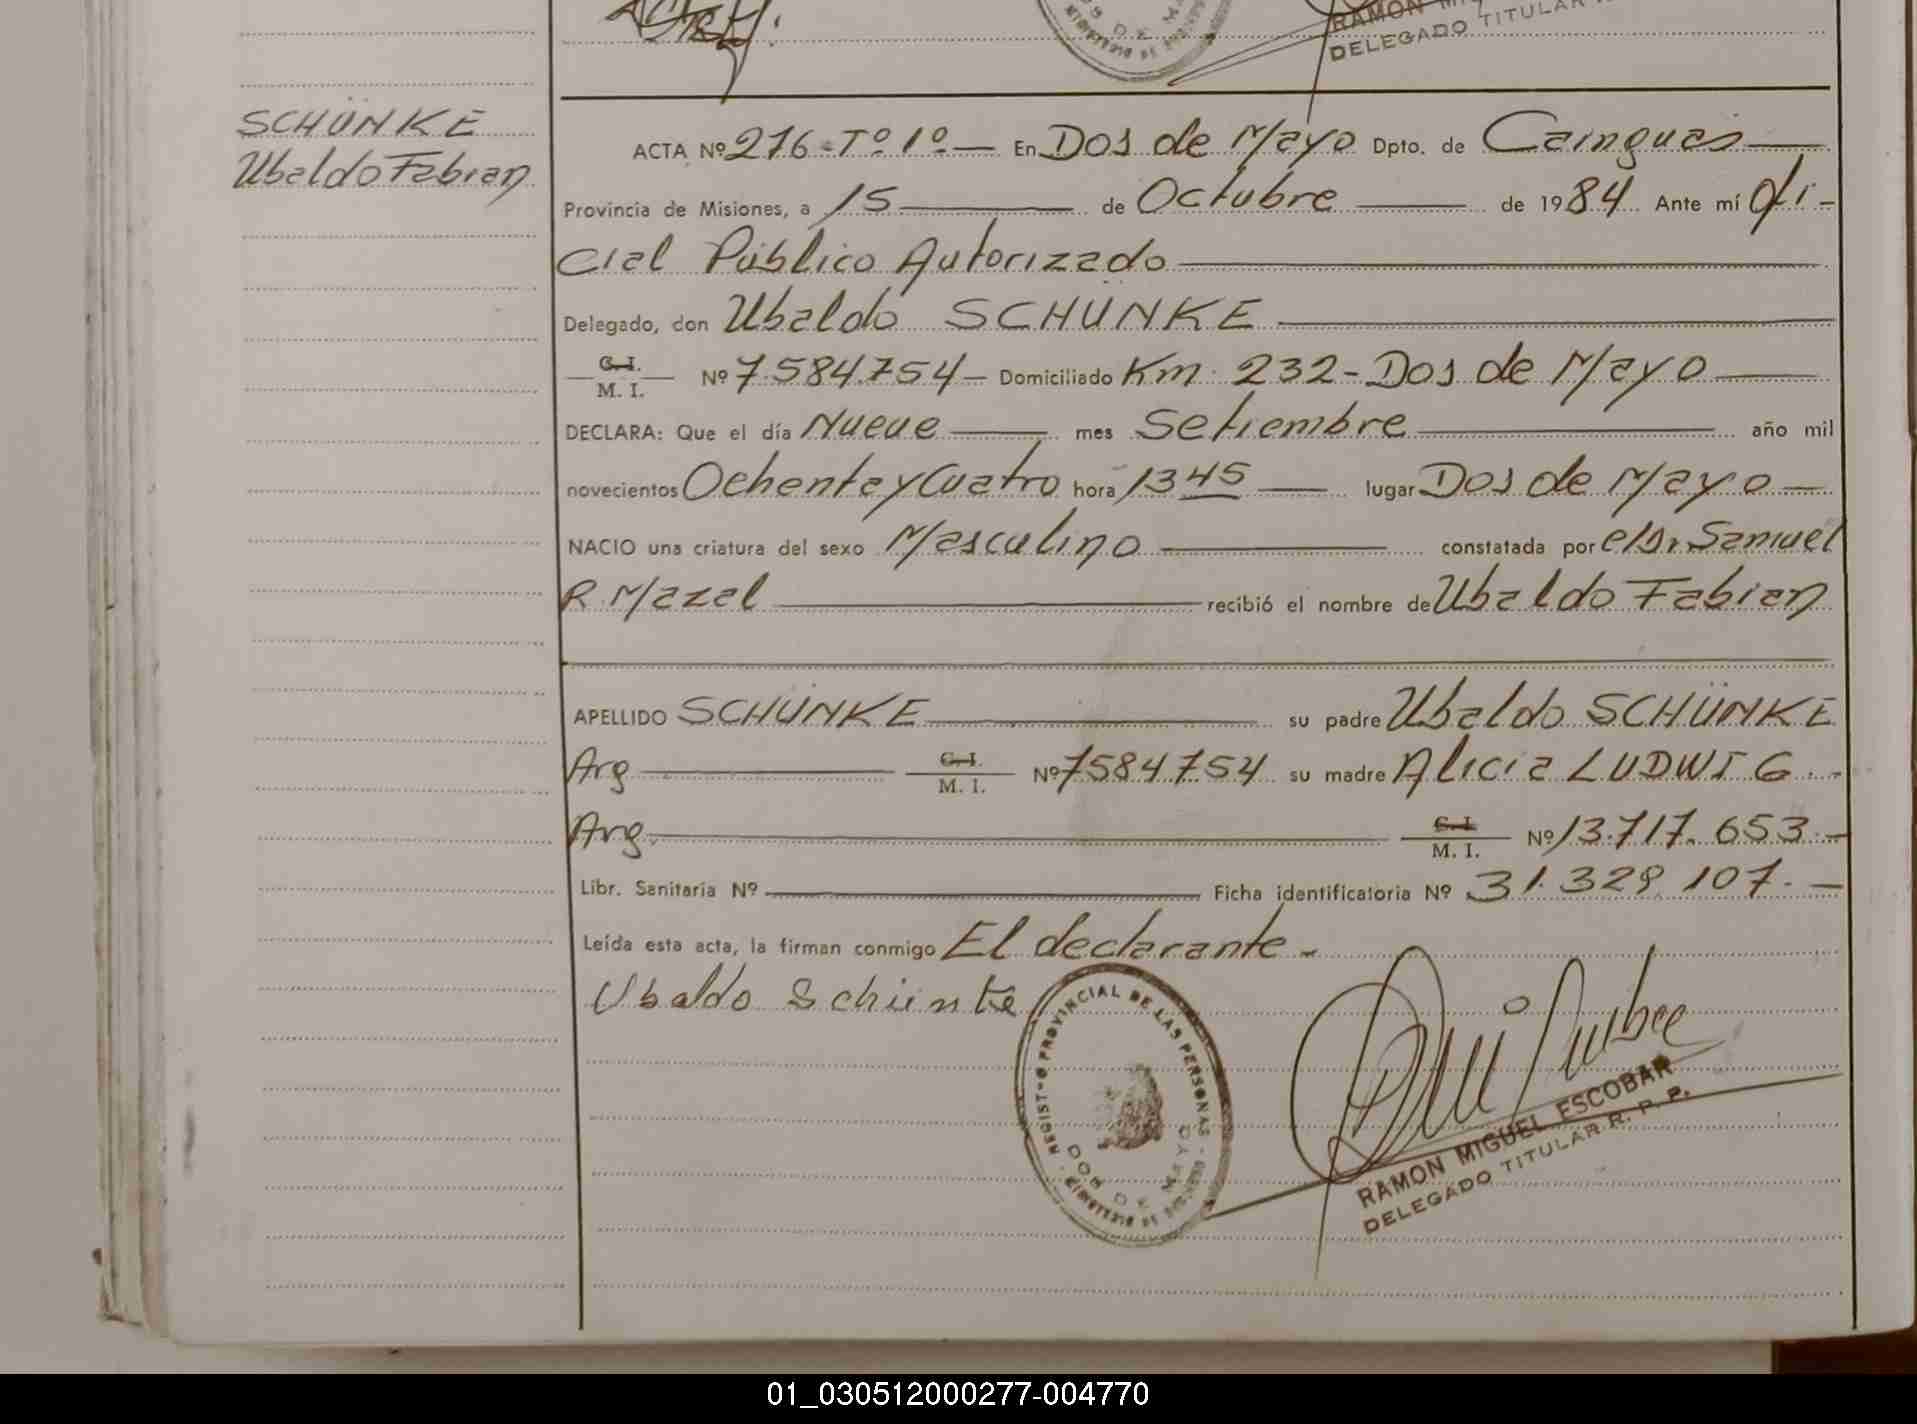 RAMON
DELEGADO TITULAR
SCHÜNKE
Ubaldo Fabian
ACTA Nº 276-Tº 1º — En Dos de Mayo Dpto. de Cainguas
Provincia de Misiones, a 15 de Octubre de 1984 Ante mí Ofi-
cial Público Autorizado
Delegado, don Ubaldo SCHÜNKE
C. I.
M. I. Nº 7.584.754- Domiciliado Km. 232-Dos de Mayo
DECLARA: Que el día Nueve mes Setiembre año mil
novecientos Ochenta y Cuatro hora 13 45 lugar Dos de Mayo
NACIO una criatura del sexo Masculino constatada por el Dr. Samuel
R. Mazal recibió el nombre de Ubaldo Fabian
APELLIDO SCHÜNKE su padre Ubaldo SCHÜNKE
Arg C. I.
M. I. Nº 7584754 su madre Alicia LUDWIG.-
Arg. C. I.
M. I. Nº 13.717.653.-
Libr. Sanitaria Nº Ficha identificatoria Nº 31.329.107.-
Leída esta acta, la firman conmigo El declarante.-
Ubaldo Schünke
PROVINCIAL DE LAS PERSONAS
DOS DE MAYO
RAMON MIGUEL ESCOBAR
DELEGADO TITULAR R. P. P.
01_030512000277-004770